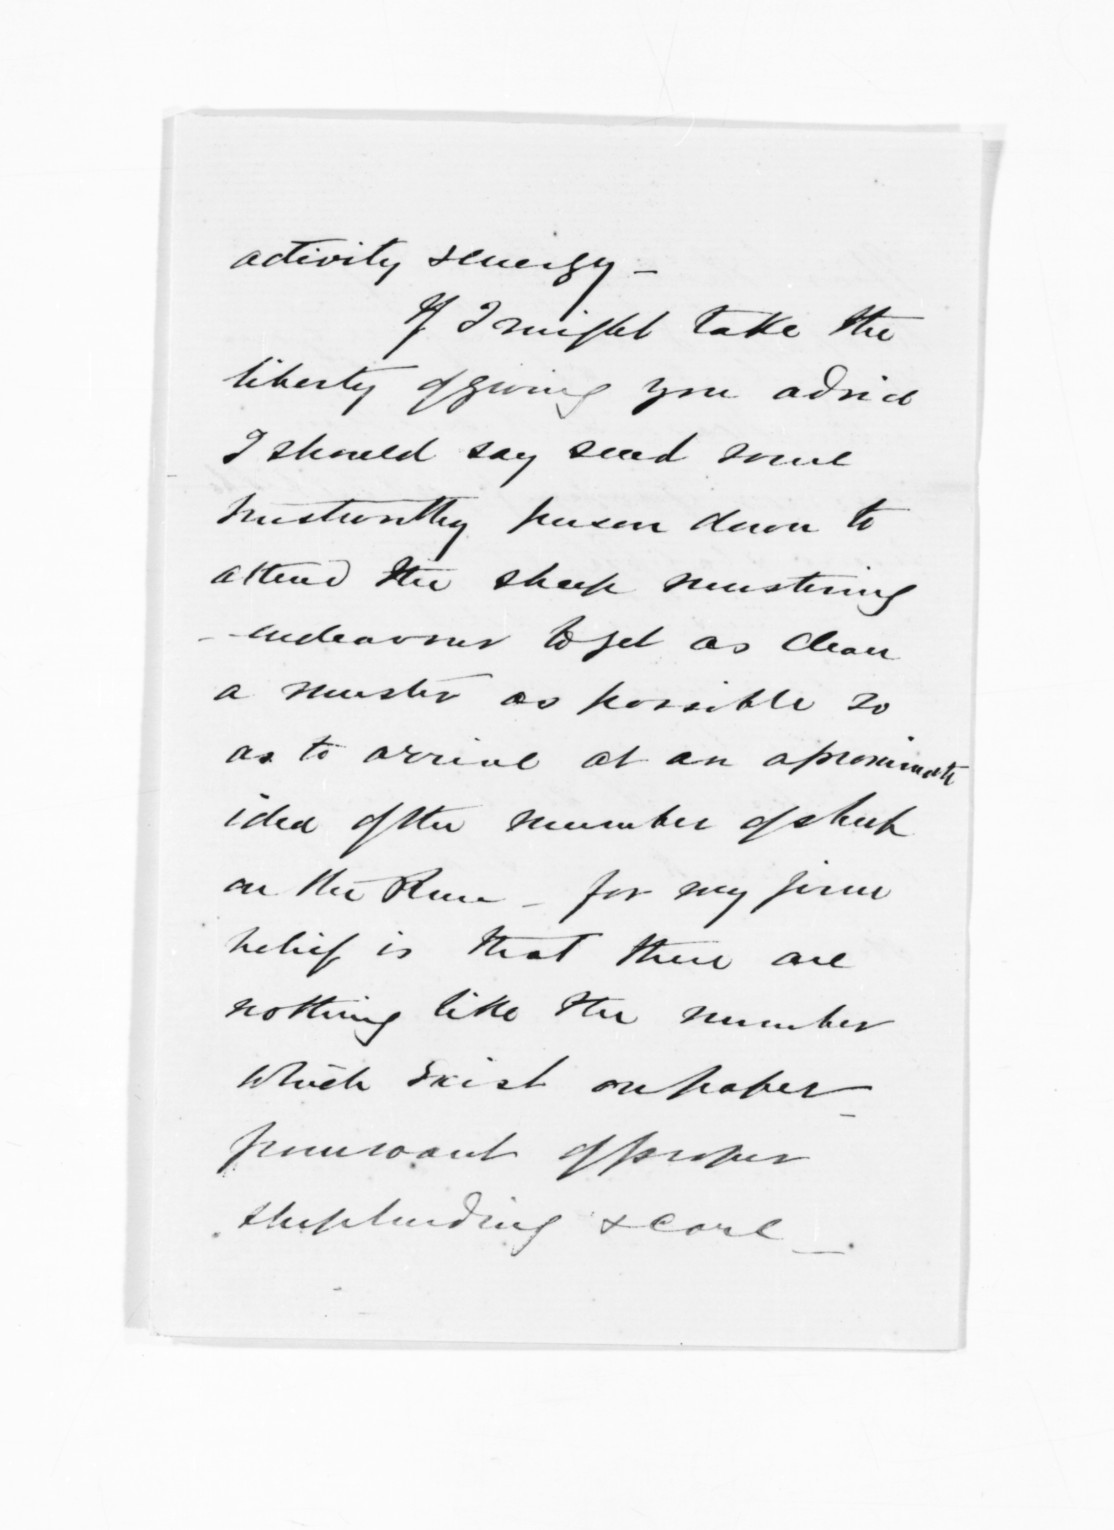 activity & energy –
If I might take the
liberty of giving you advice
I should say send some
trustworthy person down to
attend the sheep mustering
– endeavour to get as clean
a muster as possible so
as to arrive at an aproximate
idea of the number of sheep
on the Run – for my firm
belief is that there are
nothing like the number
which exist on paper –
from want of proper
shepherding & care –